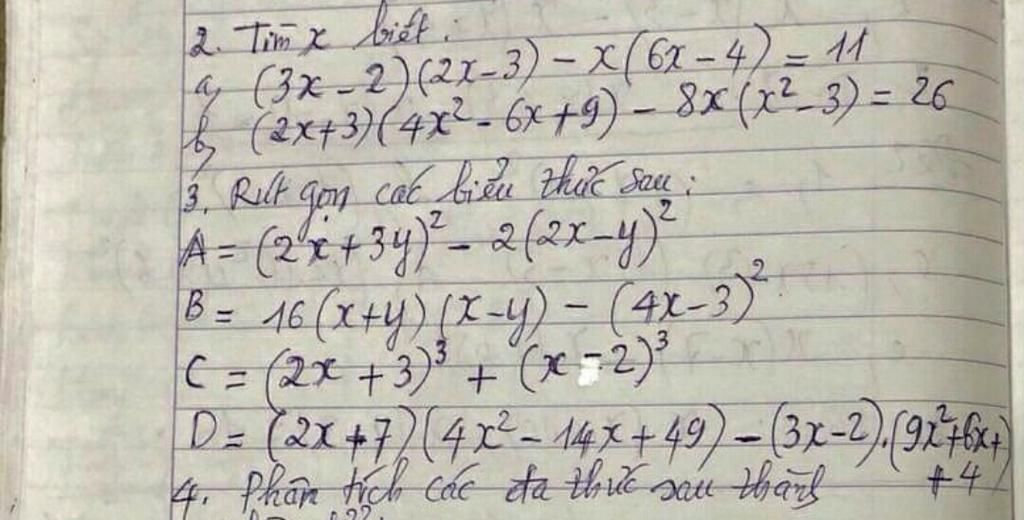 2. Tìm x biết:
a, (3x - 2)(2x - 3) - x(6x - 4) = 11
b, (2x + 3)(4x² - 6x + 9) - 8x(x² - 3) = 26
3. Rút gọn các biểu thức sau:
A = (2x + 3y)² - 2(2x - y)²
B = 16(x + y)(x - y) - (4x - 3)²
C = (2x + 3)³ + (x - 2)³
D = (2x + 7)(4x² - 14x + 49) - (3x - 2).(9x² + 6x +
+ 4)
4. Phân tích các đa thức sau thành